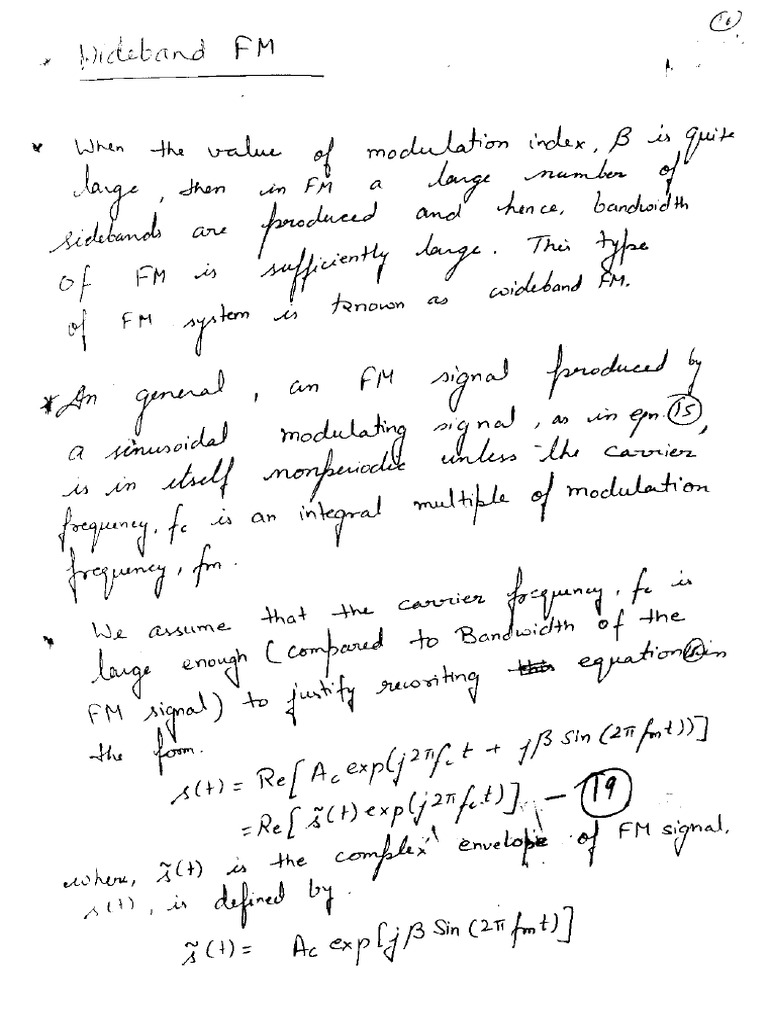 16
* Wideband FM
* When the value of modulation index, β is quite
large, then in FM a large number of
sidebands are produced and hence, bandwidth
of FM is sufficiently large. This type
of FM system is known as wideband FM.
* In general, an FM signal produced by
a sinusoidal modulating signal, as in eqn. (15),
is in itself nonperiodic unless the carrier
frequency, fc is an integral multiple of modulation
frequency, fm.
* We assume that the carrier frequency, fc is
large enough (compared to Bandwidth of the
FM signal) to justify rewriting equation in
the form.
s(t) = Re[Ac exp(j2πfct + jβ Sin (2πfmt))]
= Re[s̃(t) exp(j2πfct)] — (19)
where, s̃(t) is the complex envelope of FM signal,
s(t), is defined by.
s̃(t) = Ac exp[jβ Sin (2πfmt)]